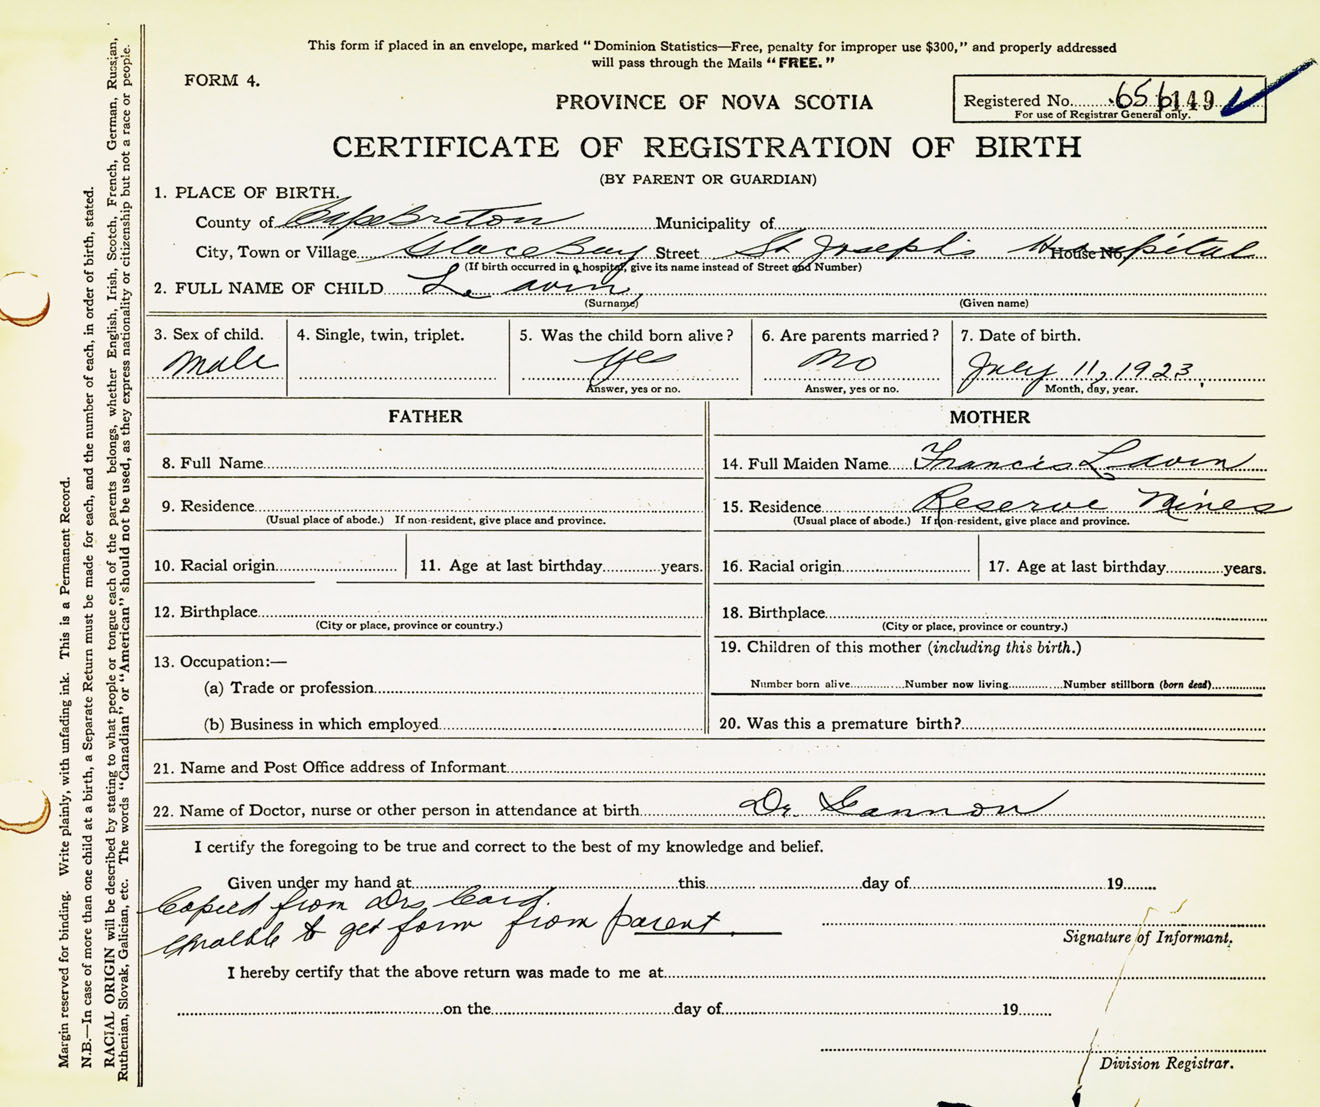 This form if placed in an envelope, marked "Dominion Statistics—Free, penalty for improper use $300," and properly addressed
will pass through the Mails "FREE."
FORM 4.
PROVINCE OF NOVA SCOTIA
Registered No. 656149
For use of Registrar General only.
CERTIFICATE OF REGISTRATION OF BIRTH
(BY PARENT OR GUARDIAN)
1. PLACE OF BIRTH.
County of Cape Breton Municipality of
City, Town or Village Glace Bay Street St Joseph's House No. Hospital
(If birth occurred in a hospital, give its name instead of Street and Number)
2. FULL NAME OF CHILD Lavin
(Surname) (Given name)
3. Sex of child. 4. Single, twin, triplet. 5. Was the child born alive? 6. Are parents married? 7. Date of birth.
Male yes no July 11, 1923
Answer, yes or no. Answer, yes or no. Month, day, year.
FATHER MOTHER
8. Full Name 14. Full Maiden Name Francis Lavin
9. Residence 15. Residence Reserve Mines
(Usual place of abode.) If non-resident, give place and province. (Usual place of abode.) If non-resident, give place and province.
10. Racial origin 11. Age at last birthday years. 16. Racial origin 17. Age at last birthday years.
12. Birthplace 18. Birthplace
(City or place, province or country.) (City or place, province or country.)
13. Occupation:— 19. Children of this mother (including this birth.)
(a) Trade or profession Number born alive Number now living Number stillborn (born dead)
(b) Business in which employed 20. Was this a premature birth?
21. Name and Post Office address of Informant
22. Name of Doctor, nurse or other person in attendance at birth Dr. Gannon
I certify the foregoing to be true and correct to the best of my knowledge and belief.
Given under my hand at this day of 19
Copied from Drs Card.
Unable to get form from parent.
Signature of Informant.
I hereby certify that the above return was made to me at
on the day of 19
Division Registrar.
Margin reserved for binding. Write plainly, with unfading ink. This is a Permanent Record.
N.B.—In case of more than one child at a birth, a Separate Return must be made for each, and the number of each, in order of birth, stated.
RACIAL ORIGIN will be described by stating to what people or tongue each of the parents belongs, whether English, Irish, Scotch, French, German, Russian,
Ruthenian, Slovak, Galician, etc. The words "Canadian" or "American" should not be used, as they express nationality or citizenship but not a race or people.